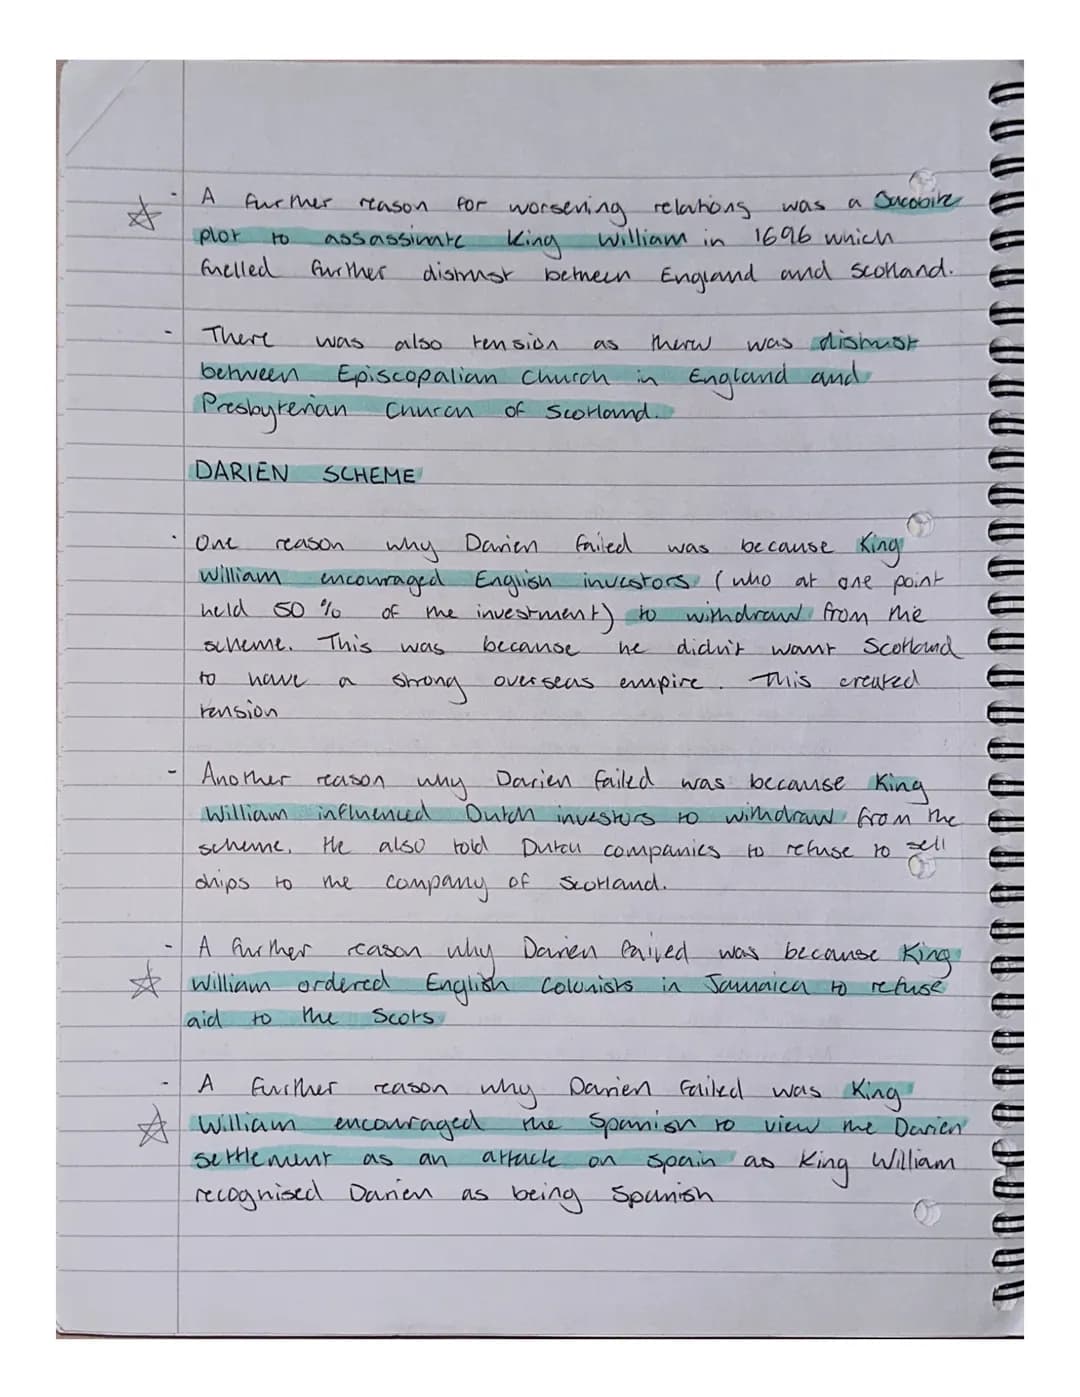 - A further reason for worsening relations was a Jacobite
plot to assassinate King William in 1696 which
fuelled further distrust between England and Scotland.
- There was also tension as there was distrust
between Episcopalian Church in England and
Presbyterian Church of Scotland.
DARIEN SCHEME
- One reason why Darien failed was because King
William encouraged English investors (who at one point
held 50% of the investment) to withdraw from the
scheme. This was because he didn't want Scotland
to have a strong overseas empire. This created
tension
- Another reason why Darien failed was because King
William influenced Dutch investors to withdraw from the
scheme. He also told Dutch companies to refuse to sell
ships to the company of Scotland.
- A further reason why Darien failed was because King
William ordered English Colonists in Jamaica to refuse
aid to the Scots
- A further reason why Darien failed was King
William encouraged the Spanish to view the Darien
settlement as an attack on Spain as King William
recognised Darien as being Spanish